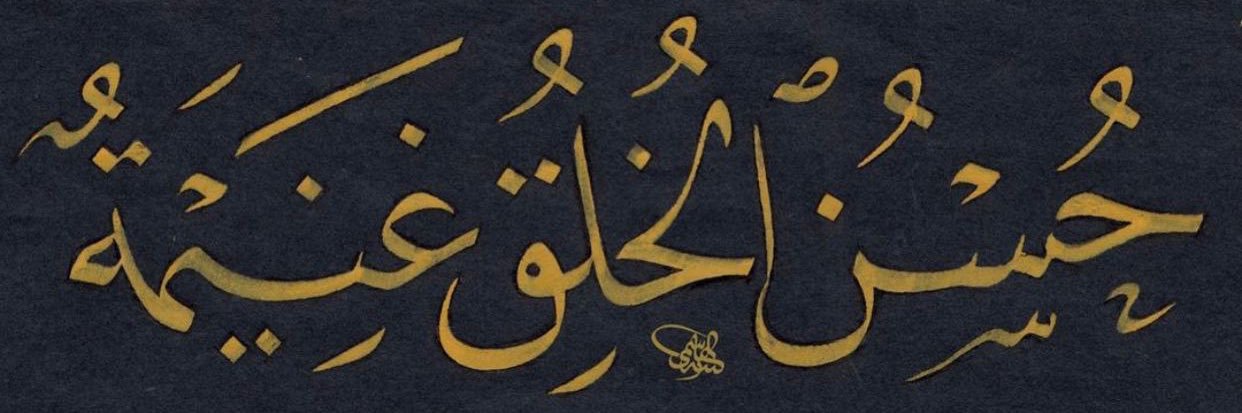 حُسْنُ الْخُلُقِ غَنِيمَةٌ